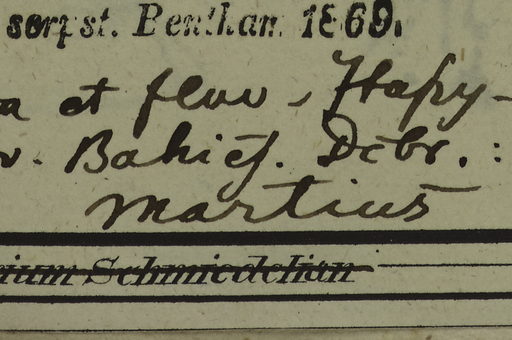 scripst. Bentham 1869.
a et fluv. Itapy-
v. Bahiens. Dcbr. :
Martius
rium Schmiedelian